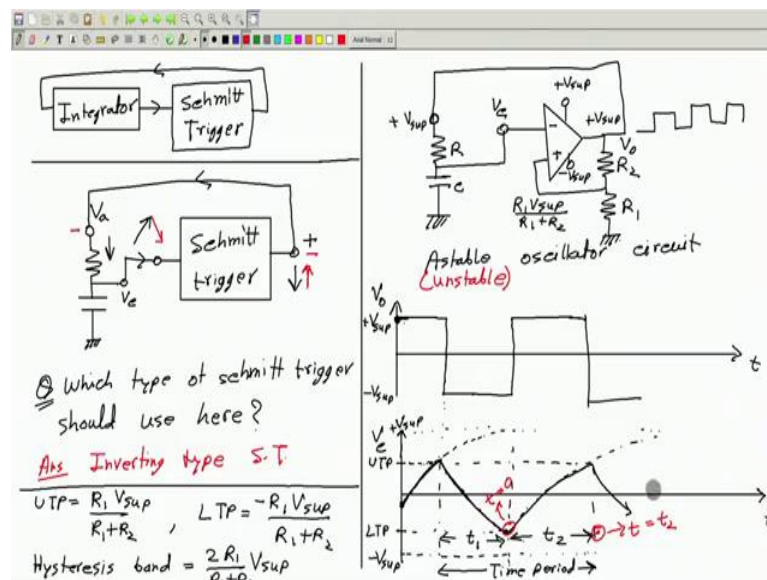 Arial Normal 12
Integrator
Schmitt
Trigger
Va
Schmitt
trigger
+
-
-
Vc
Q Which type of schmitt trigger
should use here?
Ans Inverting type S.T.
UTP = R1 Vsup / R1+R2 , LTP = -R1 Vsup / R1+R2
Hysteresis band = 2R1 / R1+R2 Vsup
+Vsup
+Vsup
Vc
+Vsup
R
-
+
V0
-Vsup
R2
c
R1 Vsup / R1+R2
R1
Astable oscillator circuit
(unstable)
V0
+Vsup
t
-Vsup
Vc
+Vsup
UTP
LTP
-Vsup
t1
t2
→ t = t2
Time period